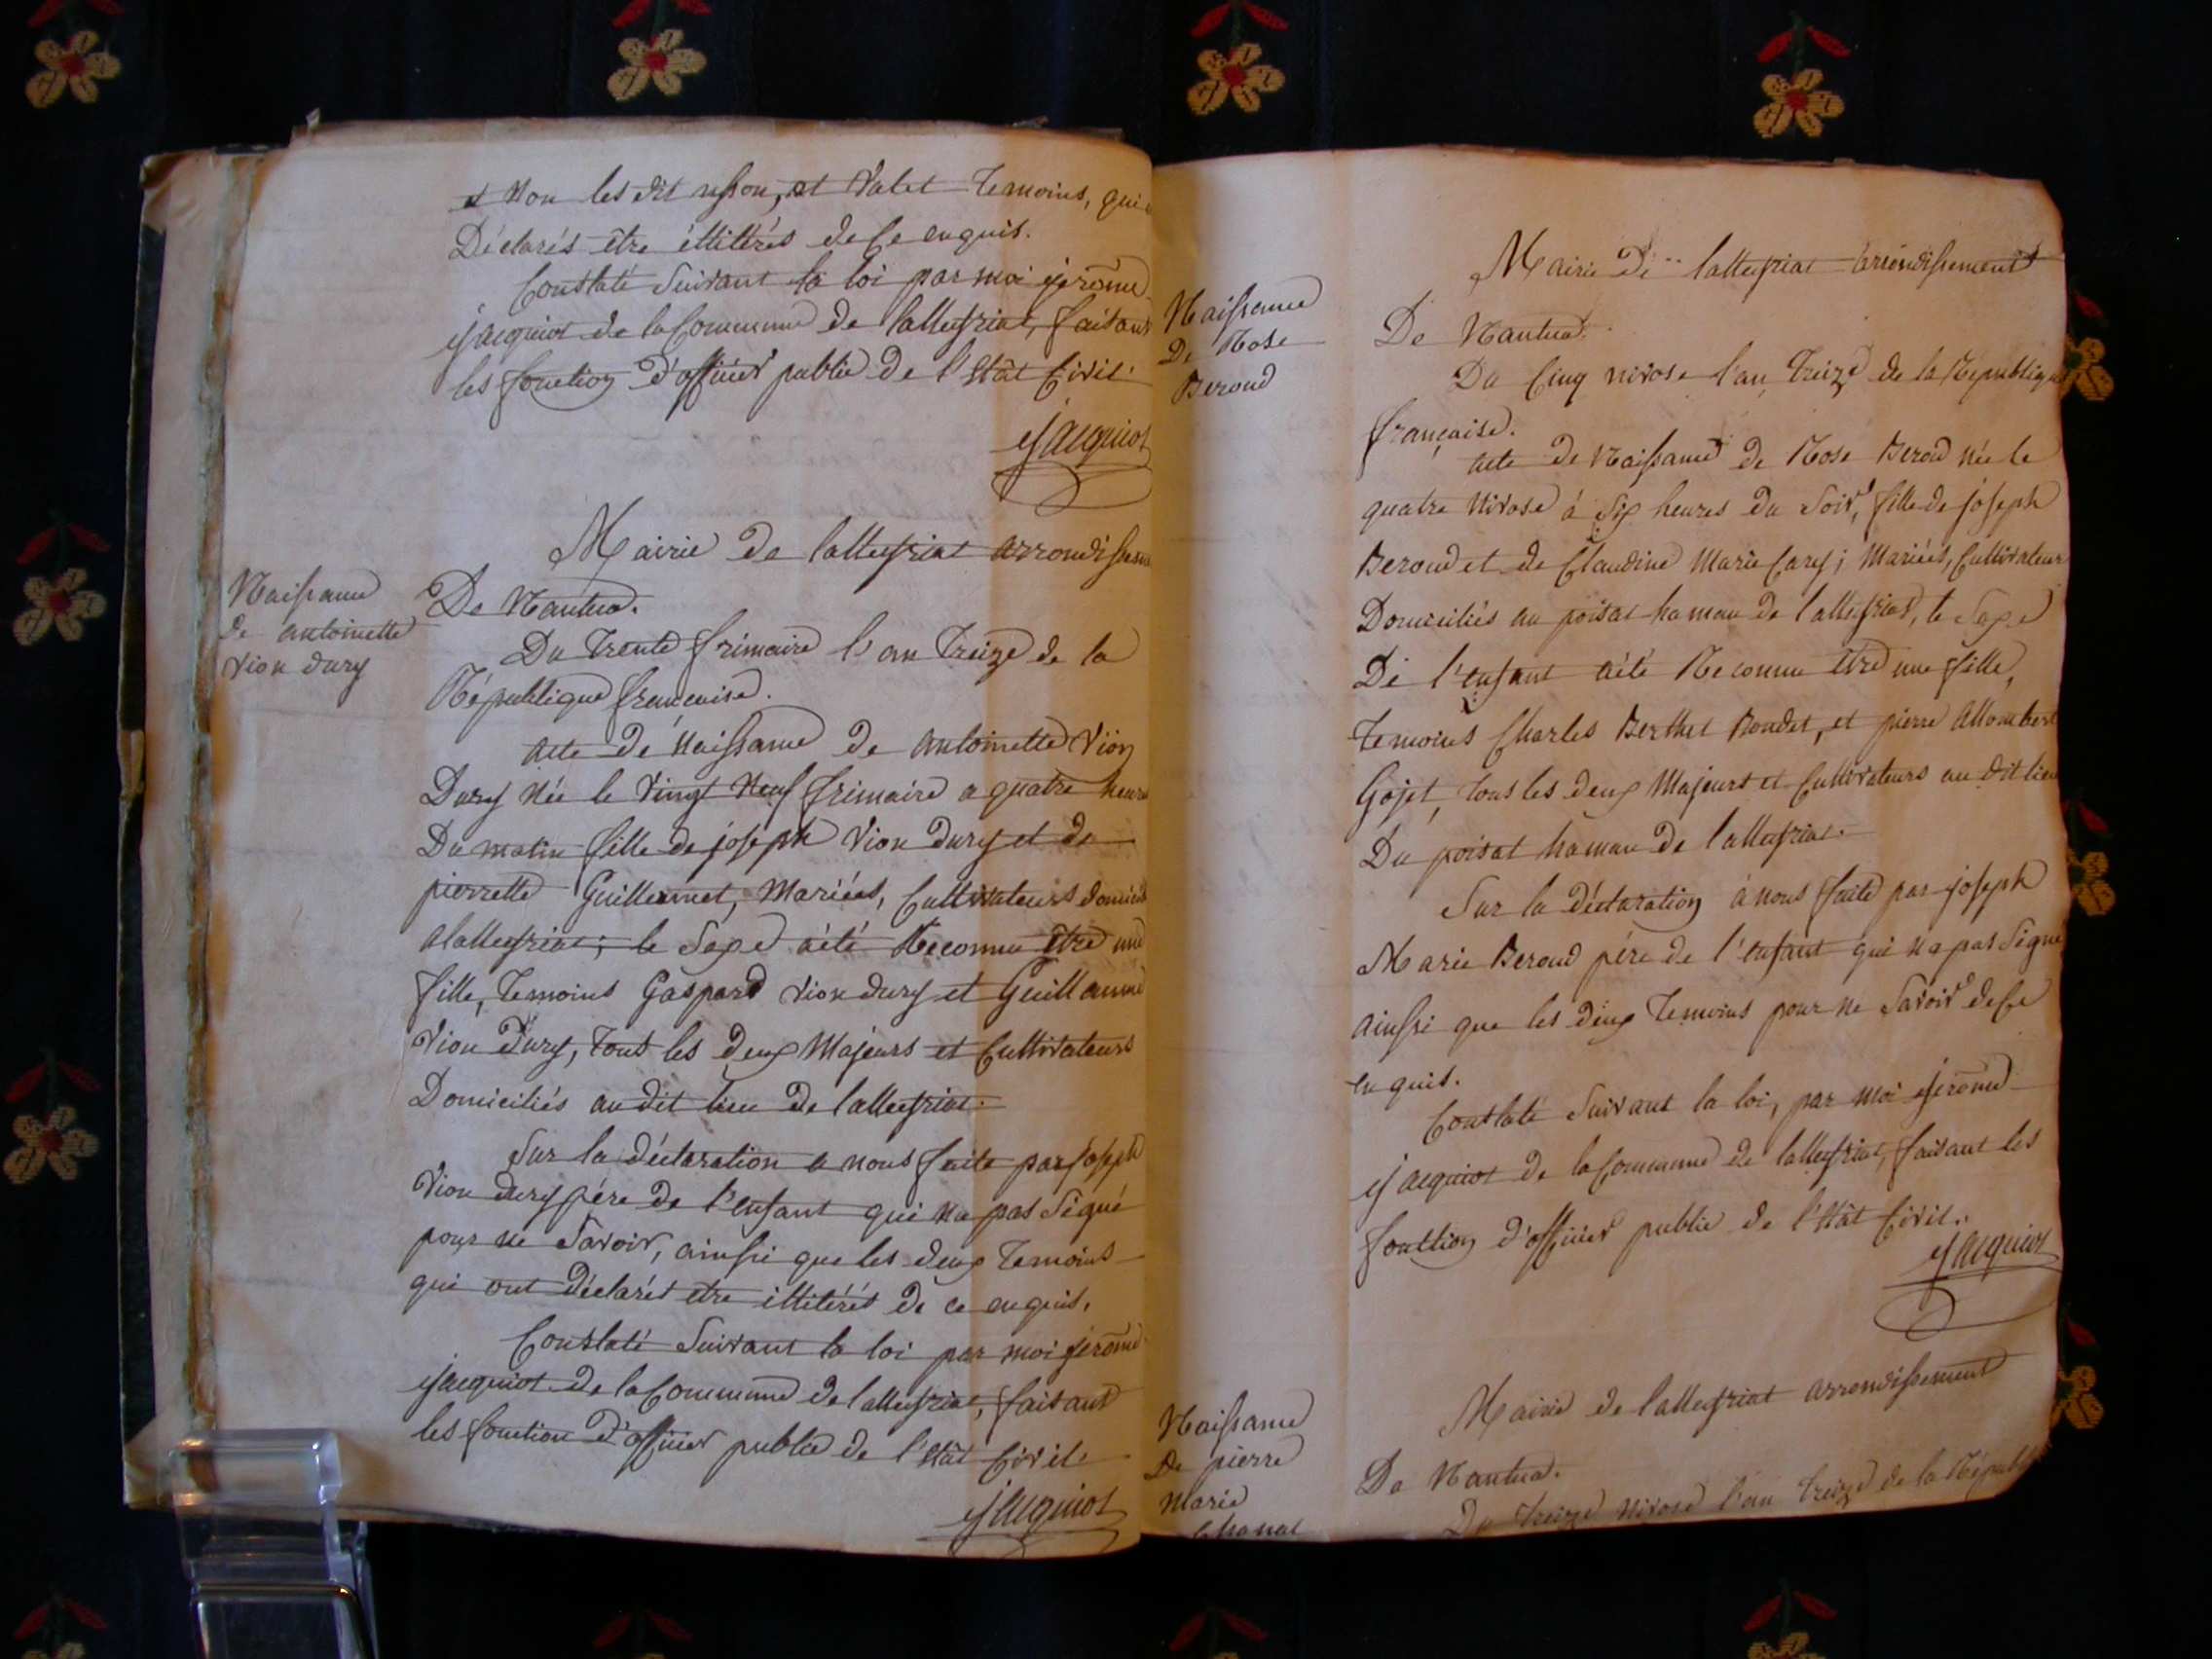 et Non les dit et Valet Temoins, qui
Déclarés être éllitérés de Ce enquis.
Constaté Suivant la loi par moi jérôme
jacquiot de la Commune de lalleyriat, faisant
les fonction d'officier public de l'Etât Civil
jacquiot
Mairie de lalleyriat arrondissem
Naissance
de antoinette
Vion dury
De Nantua.
Du trente frimaire l'an treize de la
République francaise.
acte de Naissance de antoinette Vion
Dury Née le Vingt Neuf frimaire a quatre heures
Du matin fille de joseph Vion dury et de
pierrette Guillermet, Mariées, Cultivateurs domicil
alalleyriat; le Sexe aété Reconnu être une
fille, Temoins Gaspard Vion dury et Guillaume
Vion Dury, tous les deux Majeurs et Cultivateurs
Domiciliés au dit lieu de lalleyriat.
Sur la déclaration a nous faite par joseph
Vion dury pére de l'enfant qui na pas Signé
pour ne Savoir, ainssi que les deux Temoins
qui ont déclarés etre illitérés de ce enquis.
Constaté Suivant la loi par moi jérôme
jacquiot de la Commune de lalleyriat, faisant
les fonction d'officier public de l'Etât Civil.
jacquiot
Mairie De lalleyriat arrondissement
Naissance
De Rose
Beroud
De Nantua.
Du Cinq nivose l'an Treize de la Republique
française.
acte de Naissance de Rose Beroud Née le
quatre Nivose à Six heures du Soir, fille de joseph
Beroud et de Claudine Marie Cary; Mariées, Cultivateur
Domiciliés au poisat hamau de lalleyriat, le Sexe
De l'enfant aété Reconnu être une fille,
Temoins Charles Berthet Bondet, et pierre Allombert
Gojet, tous les deux Majeurs et Cultivateurs au dit lieu
Du poisat hamau de lalleyriat.
Sur la déclaration à nous faite par joseph
Marie Beroud pére de l'enfant qui na pas Signé
ainssi que les deux Temoins pour ne Savoir de Ce
enquis.
Constaté Suivant la loi, par moi jérôme
jacquiot de la Commune de lalleyriat, faisant les
fonction d'officier public de l'Etât Civil.
jacquiot
Mairie de lalleyriat arrondissement
Naissance
De pierre
Marie
Chanal
De Nantua.
Du treize Nivose l'an treize de la Républ